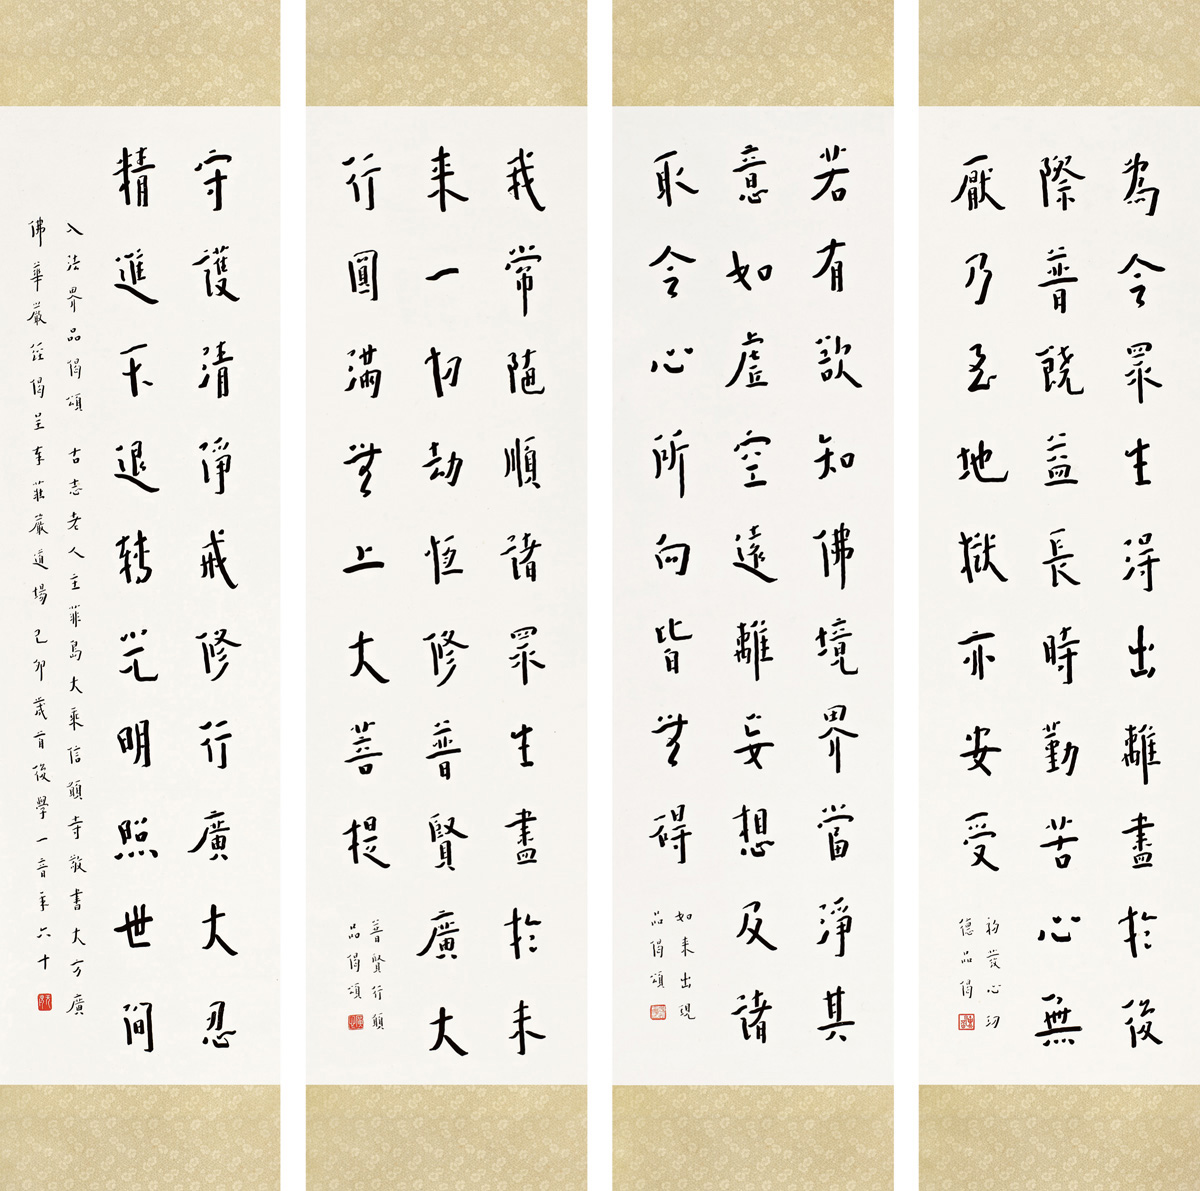 為令眾生得出離盡於後
際普饒益長時勤苦心無
厭乃至地獄亦安受
初發心功
德品偈
若有欲知佛境界當淨其
意如虛空遠離妄想及諸
取令心所向皆無碍
如來出現
品偈頌
我常隨順諸眾生盡於未
來一切劫恒修普賢廣大
行圓滿無上大菩提
普賢行願
品偈頌
守護清淨戒修行廣大忍
精進不退轉光明照世間
入法界品偈頌 古志老人主菲島大乘信願寺敬書大方廣
佛華嚴經偈呈奉莊嚴道場己卯歲首後學一音年六十